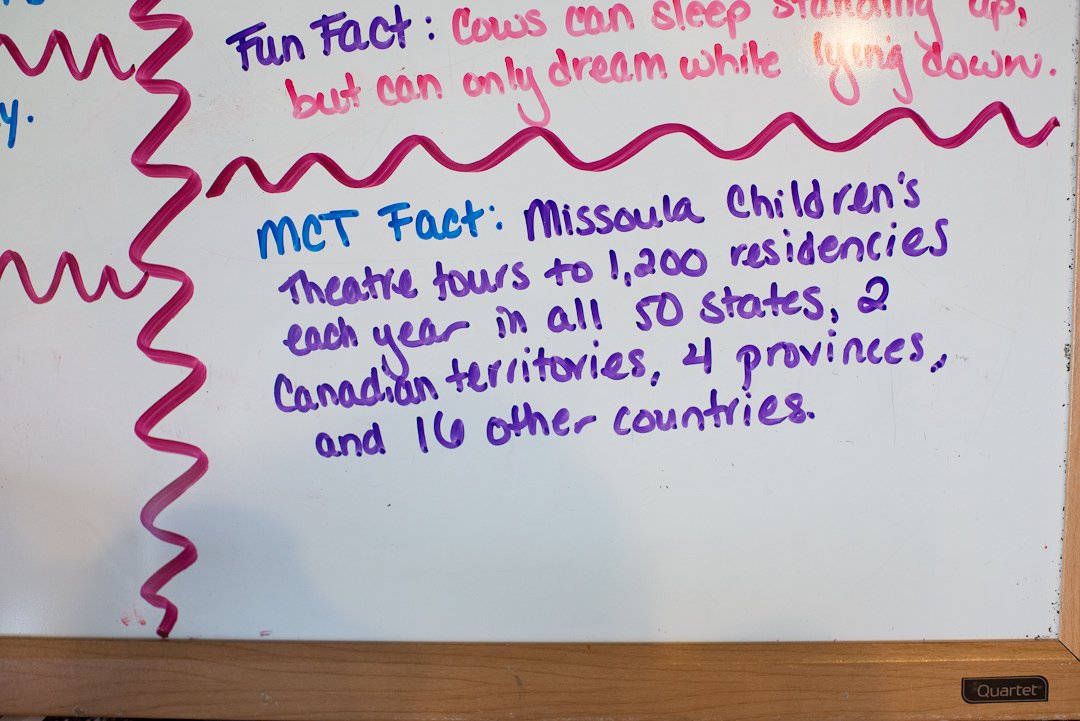 y.
Fun Fact: Cows can sleep standing up,
but can only dream while lying down.
MCT Fact: Missoula Children's
Theatre tours to 1,200 residencies
each year in all 50 states, 2
Canadian territories, 4 provinces,
and 16 other countries.
Quartet